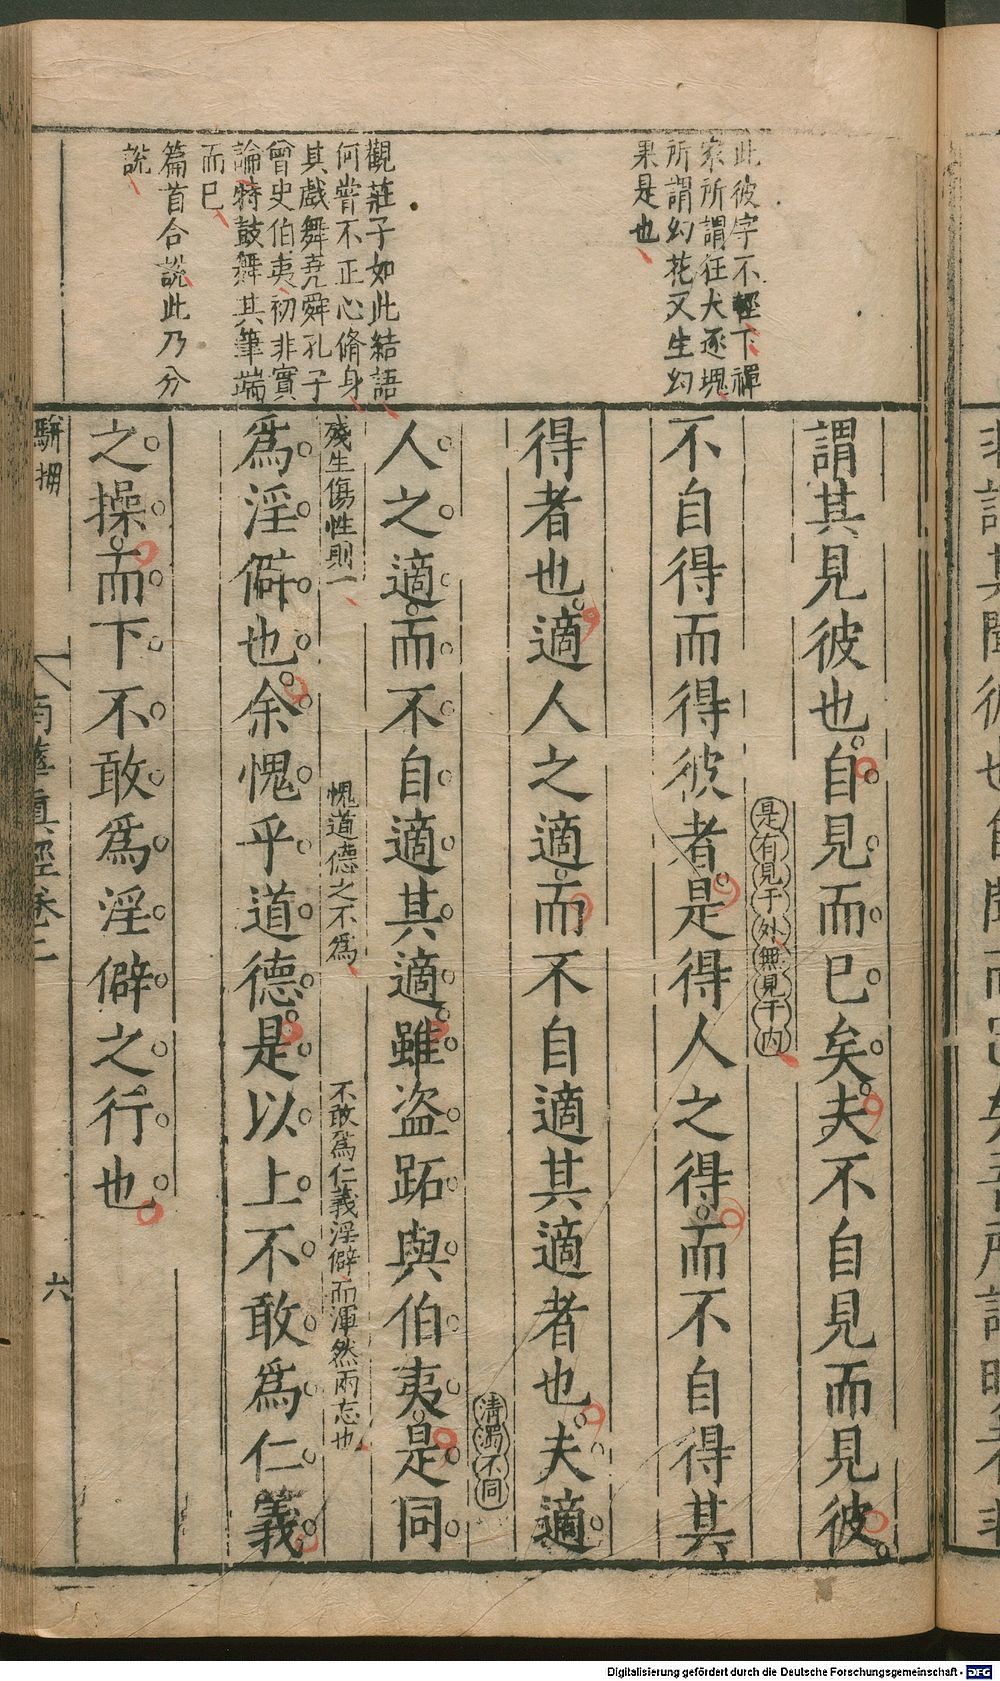 此彼字不輕下禪
家所謂狂犬逐塊
所謂幻花又生幻
果是也
觀莊子如此結語
何嘗不正心脩身
其戲舞堯舜孔子
曾史伯夷初非實
論特鼓舞其筆端
而已
篇首合說此乃分
說
謂其見彼也自見而已矣夫不自見而見彼
是有見于外無見于內
不自得而得彼者是得人之得而不自得其
得者也適人之適而不自適其適者也夫適
清濁不同
人之適而不自適其適雖盜跖與伯夷是同
殘生傷性則一
愧道德之不爲
不敢爲仁義淫僻而渾然兩忘也
爲淫僻也余愧乎道德是以上不敢爲仁義
之操而下不敢爲淫僻之行也
駢拇
南華真經卷二
六
Digitalisierung gefördert durch die Deutsche Forschungsgemeinschaft - DFG